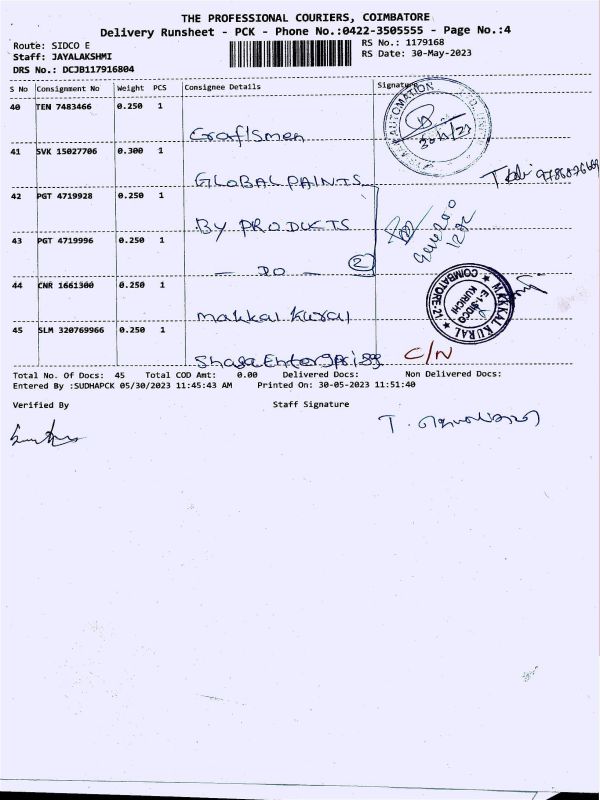 THE PROFESSIONAL COURIERS, COIMBATORE
Delivery Runsheet - PCK - Phone No.:0422-3505555 - Page No.:4
Route: SIDCO E
RS No.: 1179168
Staff: JAYALAKSHMI
RS Date: 30-May-2023
DRS No.: DCJB117916804
S No Consignment No Weight PCS Consignee Details Signature
40 TEN 7483466 0.250 1
Craftsmen
41 SVK 15027706 0.300 1
GLOBAL PAINTS
42 PGT 4719928 0.250 1
BY PRODUCTS
43 PGT 4719996 0.250 1
- DO - 2
44 CNR 1661300 0.250 1
Makkal Kural
MAKKAL KURAL
COIMBATORE-21
I.E-SIDCO
KURICHI
45 SLM 320769966 0.250 1
C/N
Total No. Of Docs: 45 Total COD Amt: 0.00 Delivered Docs: Non Delivered Docs:
Entered By :SUDHAPCK 05/30/2023 11:45:43 AM Printed On: 30-05-2023 11:51:40
Verified By Staff Signature